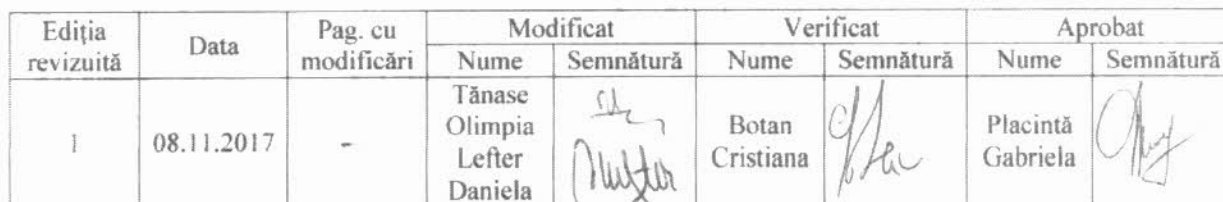 Ediția revizuită Data Pag. cu modificări Modificat Verificat Aprobat
Nume Semnătură Nume Semnătură Nume Semnătură
1 08.11.2017 - Tănase Olimpia Lefter Daniela Botan Cristiana Placintă Gabriela